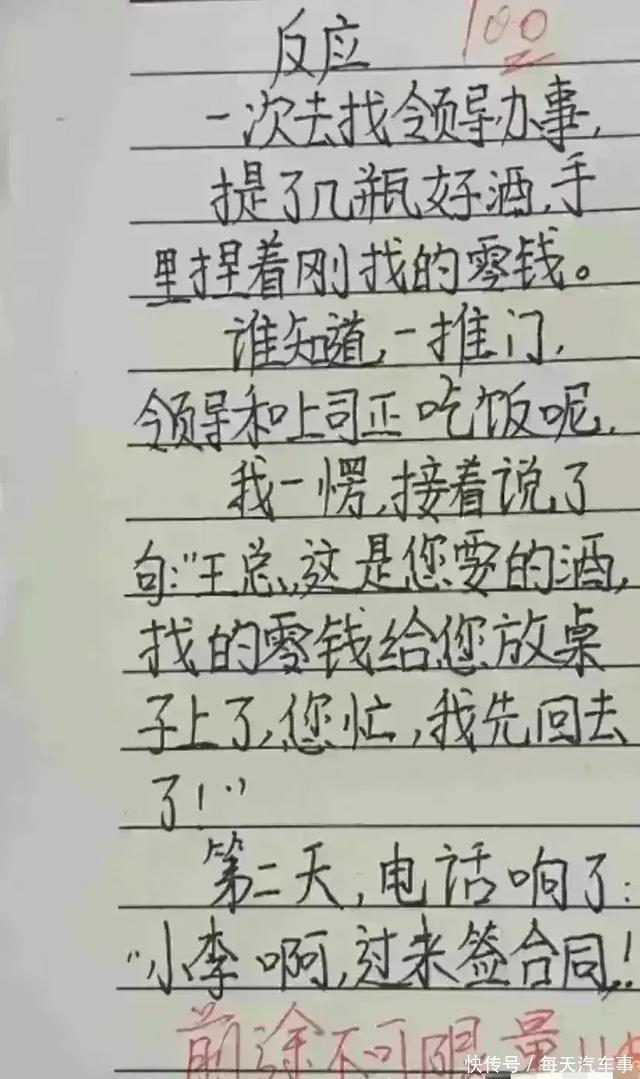 反应
100
一次去找领导办事,
提了几瓶好酒,手
里捏着刚找的零钱。
谁知道,一推门,
领导和上司正吃饭呢,
我一愣,接着说了
句:"王总,这是您要的酒,
找的零钱给您放桌
子上了,您忙,我先回去
了!"
第二天,电话响了:
"小李啊,过来签合同!
前途不可限量
快传号/每天汽车事